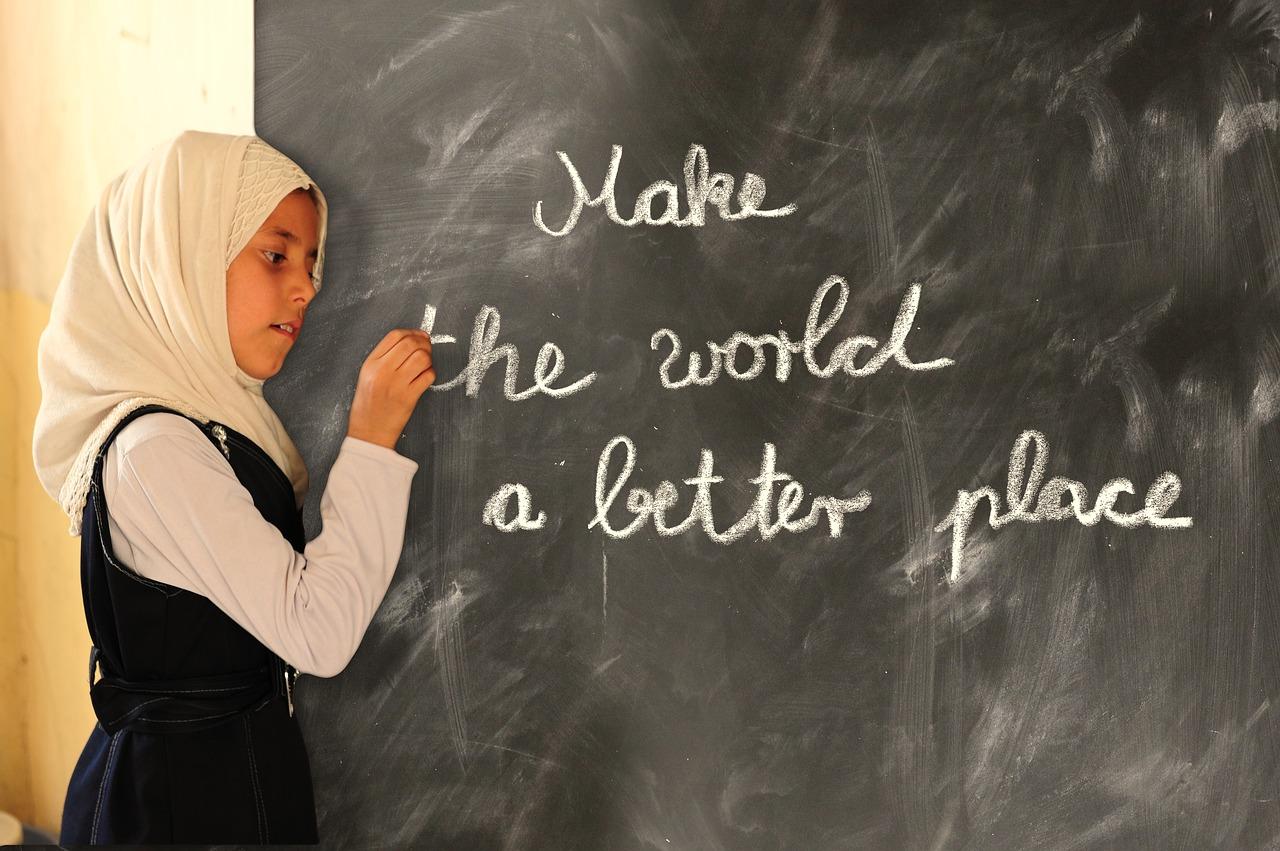 Make
the world
a better place